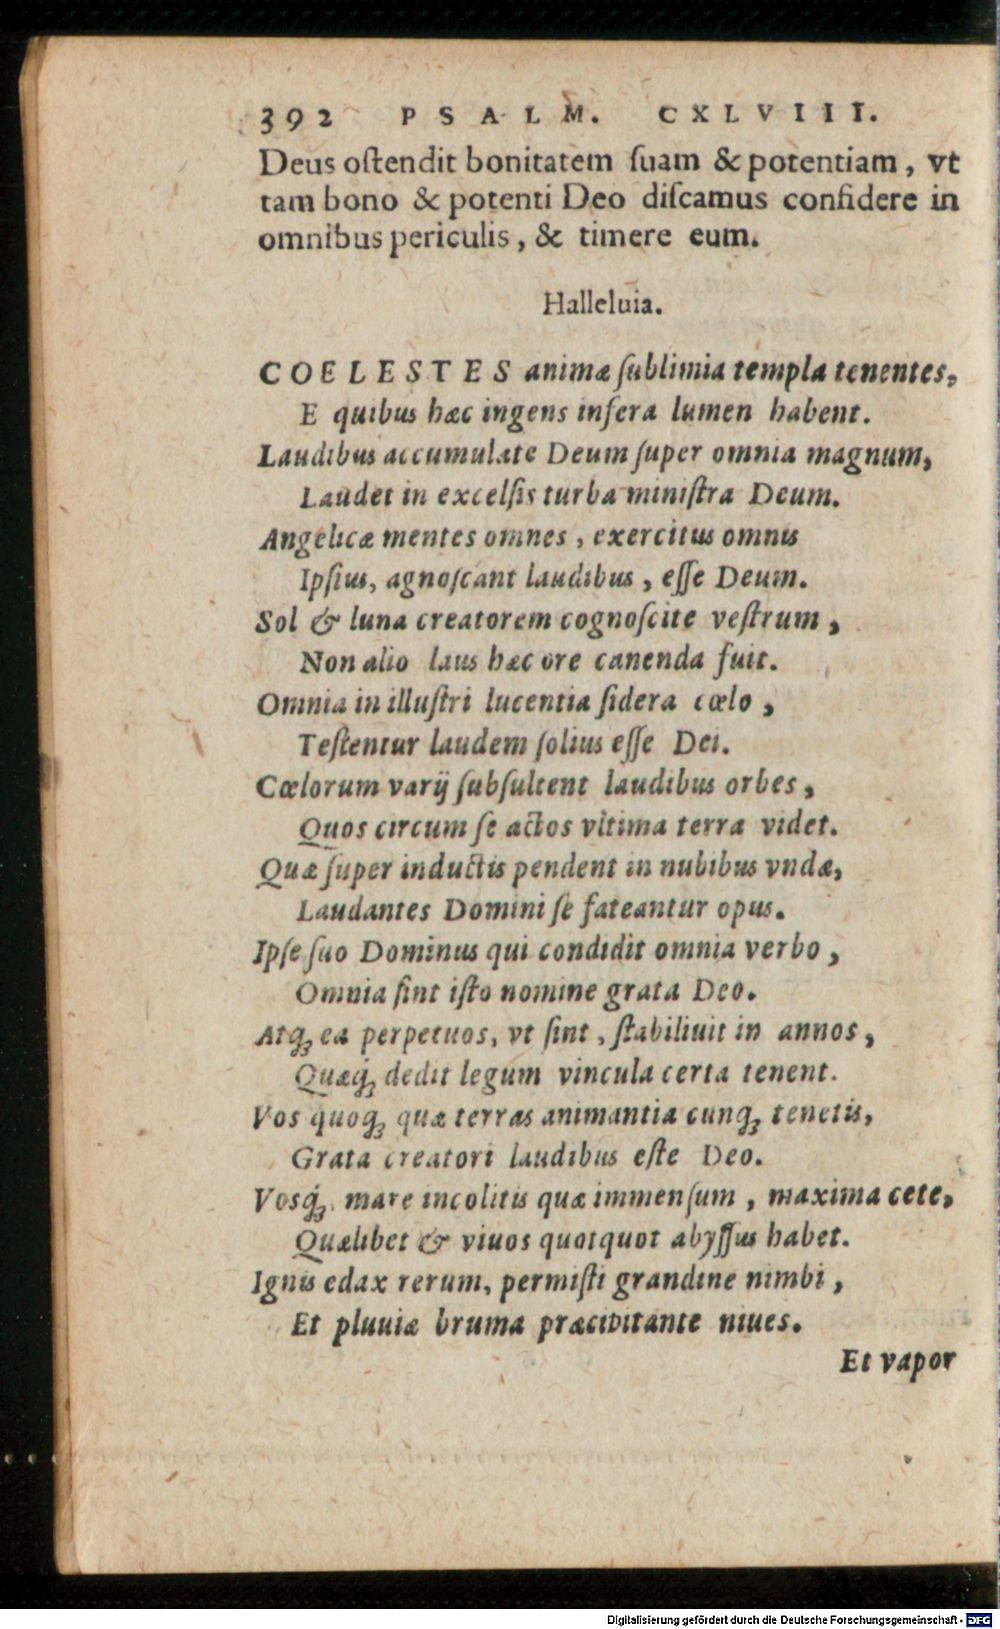 392 PSALM. CXLVIII.
Deus oſtendit bonitatem ſuam & potentiam, vt
tam bono & potenti Deo diſcamus confidere in
omnibus periculis, & timere eum.
Halleluia.
COELESTES animæ ſublimia templa tenentes,
E quibus hæc ingens infera lumen habent.
Laudibus accumulate Deum ſuper omnia magnum,
Laudet in excelſis turba miniſtra Deum.
Angelicæ mentes omnes, exercitus omnis
Ipſius, agnoſcant laudibus, eſſe Deum.
Sol & luna creatorem cognoſcite veſtrum,
Non alio laus hæc ore canenda fuit.
Omnia in illuſtri lucentia ſidera cœlo,
Teſtentur laudem ſolius eſſe Dei.
Cœlorum varij ſubſultent laudibus orbes,
Quos circum ſe actos vltima terra videt.
Quæ ſuper inductis pendent in nubibus vndæ,
Laudantes Domini ſe fateantur opus.
Ipſe ſuo Dominus qui condidit omnia verbo,
Omnia ſint iſto nomine grata Deo.
Atq; ea perpetuos, vt ſint, ſtabiliuit in annos,
Quæq́; dedit legum vincula certa tenent.
Vos quoq; quæ terras animantia cunq; tenetis,
Grata creatori laudibus eſte Deo.
Vosq́; mare incolitis quæ immenſum, maxima cete,
Quælibet & viuos quotquot abyſſus habet.
Ignis edax rerum, permiſti grandine nimbi,
Et pluuiæ bruma præcipitante niues.
Et vapor
Digitalisierung gefördert durch die Deutsche Forschungsgemeinschaft - DFG